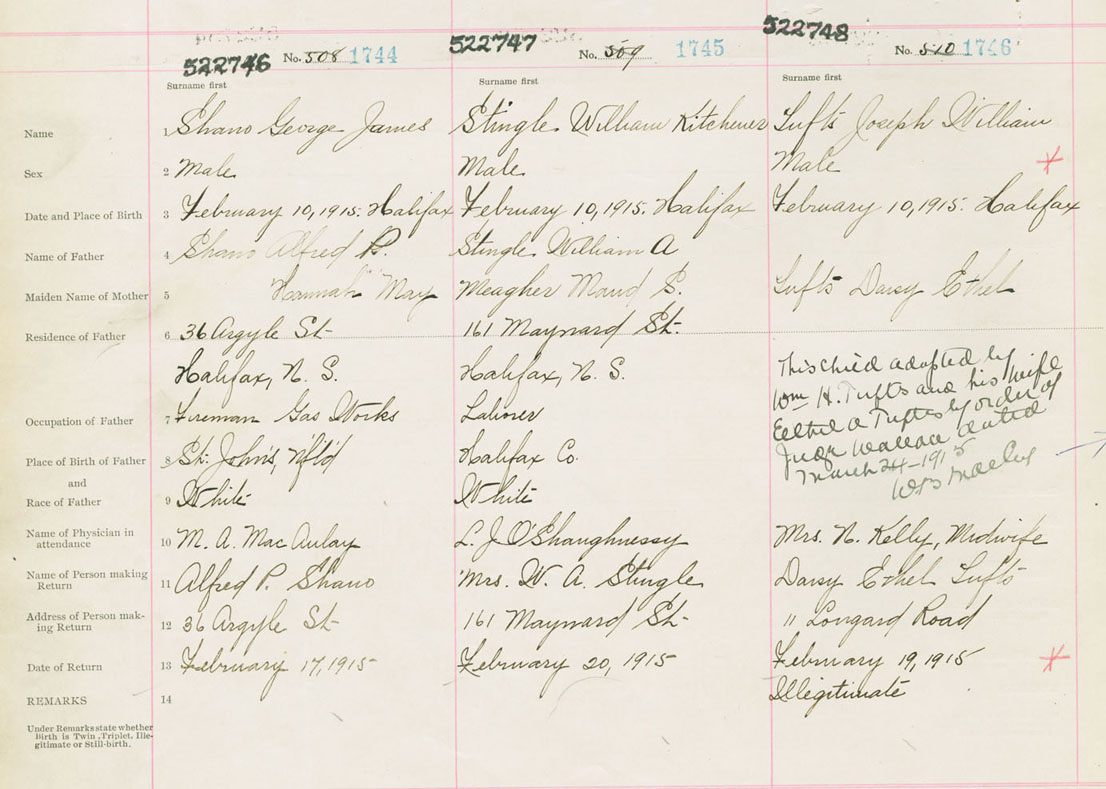 522746 No. 508 1744
522747 No. 509 1745
522748 No. 510 1746
Surname first Surname first Surname first
Name 1 Shano George James Stingle William Kitchener Tufts Joseph William
Sex 2 Male Male Male
Date and Place of Birth 3 February 10, 1915. Halifax February 10, 1915. Halifax February 10, 1915. Halifax
Name of Father 4 Shano Alfred P. Stingle William A
Maiden Name of Mother 5 Hannah May Meagher Maud S. Tufts Daisy Ethel
Residence of Father 6 36 Argyle St 161 Maynard St
Halifax, N. S. Halifax, N. S.
This child adopted by
Wm H. Tufts and his wife
Ethel A Tufts by order of
Judge Wallace dated
March 24-1915
Occupation of Father 7 Fireman Gas Works Laborer
Place of Birth of Father 8 St. John's, Nfld Halifax Co.
and
Race of Father 9 White White
Name of Physician in
attendance 10 M. A. MacAulay L. J O'Shaughnessy Mrs. N. Kelly, Midwife
Name of Person making
Return 11 Alfred P. Shano Mrs. W. A. Stingle Daisy Ethel Tufts
Address of Person mak-
ing Return 12 36 Argyle St 161 Maynard St 11 Longard Road
Date of Return 13 February 17, 1915 February 20, 1915 February 19, 1915
REMARKS 14 Illegitimate
Under Remarks state whether
Birth is Twin, Triplet, Ille-
gitimate or Still-birth.